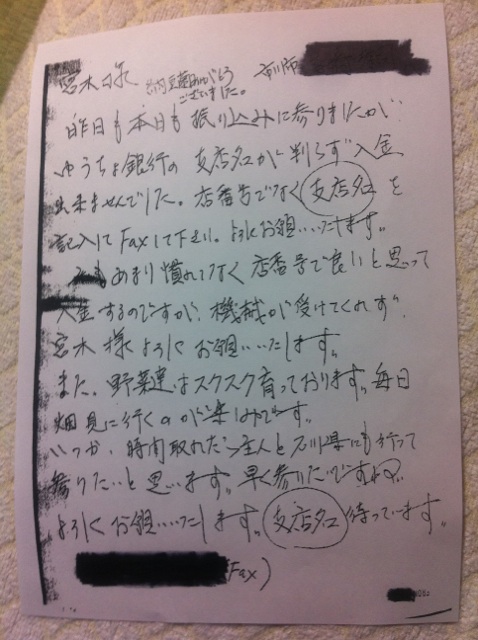 宮木様 納豆菌ありがとう 市川市
ございました。
昨日も本日も振り込みに参りましたが、
ゆうちょ銀行の支店名が判らず入金
出来ませんでした。店番号でなく支店名を
記入してFaxして下さい。よろしくお願いいたします。
あまり慣れてなく店番号で良いと思って
入金するのですが、機械が受けてくれず、
宮木様よろしくお願いいたします。
また、野菜達はスクスク育っております。毎日
畑見に行くのが楽しみです。
いつか、時間取れたら主人と石川県にも行って
参りたいと思います。早く参りたいですね。
よろしくお願いいたします。支店名待っています。
Fax)